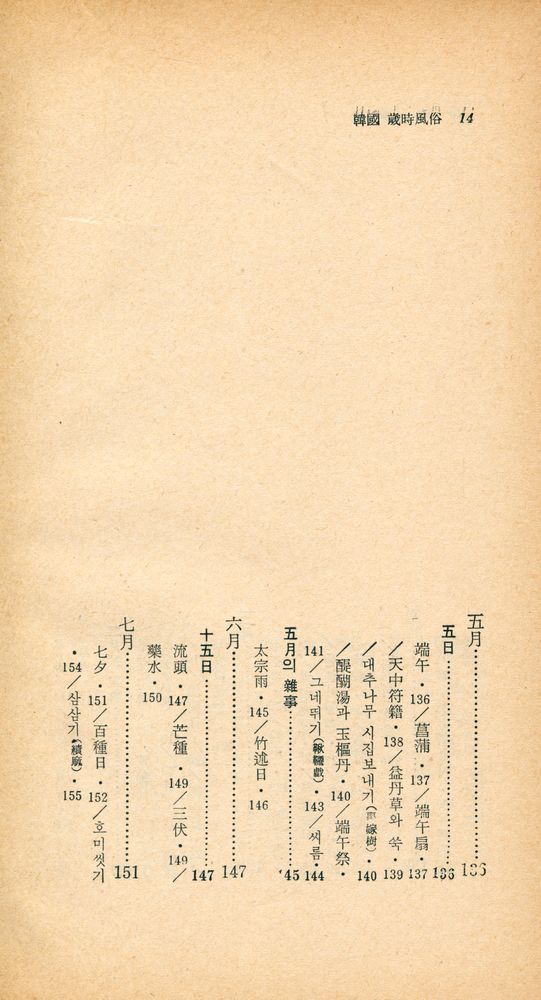 韓國 歲時風俗 14
五月……136
五日……136
端午・136／菖蒲・137／端午扇・137
／天中符籍・138／益丹草와 쑥・139
／대추나무 시집보내기(嫁樹)・140
／醍醐湯과 玉樞丹・140／端午祭・
141／그네뛰기(鞦韆戲)・143／씨름・144
五月의 雜事……145
太宗雨・145／竹述日・146
六月……147
十五日……147
流頭・147／芒種・149／三伏・149／
藥水・150
七月……151
七夕・151／百種日・152／호미씻기
・154／삼삼기(績麻)・155